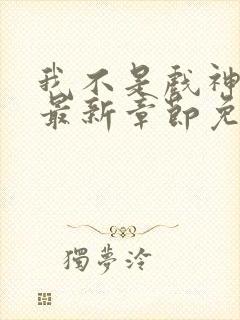 我不是戏神
最新章节免
獨夢泠